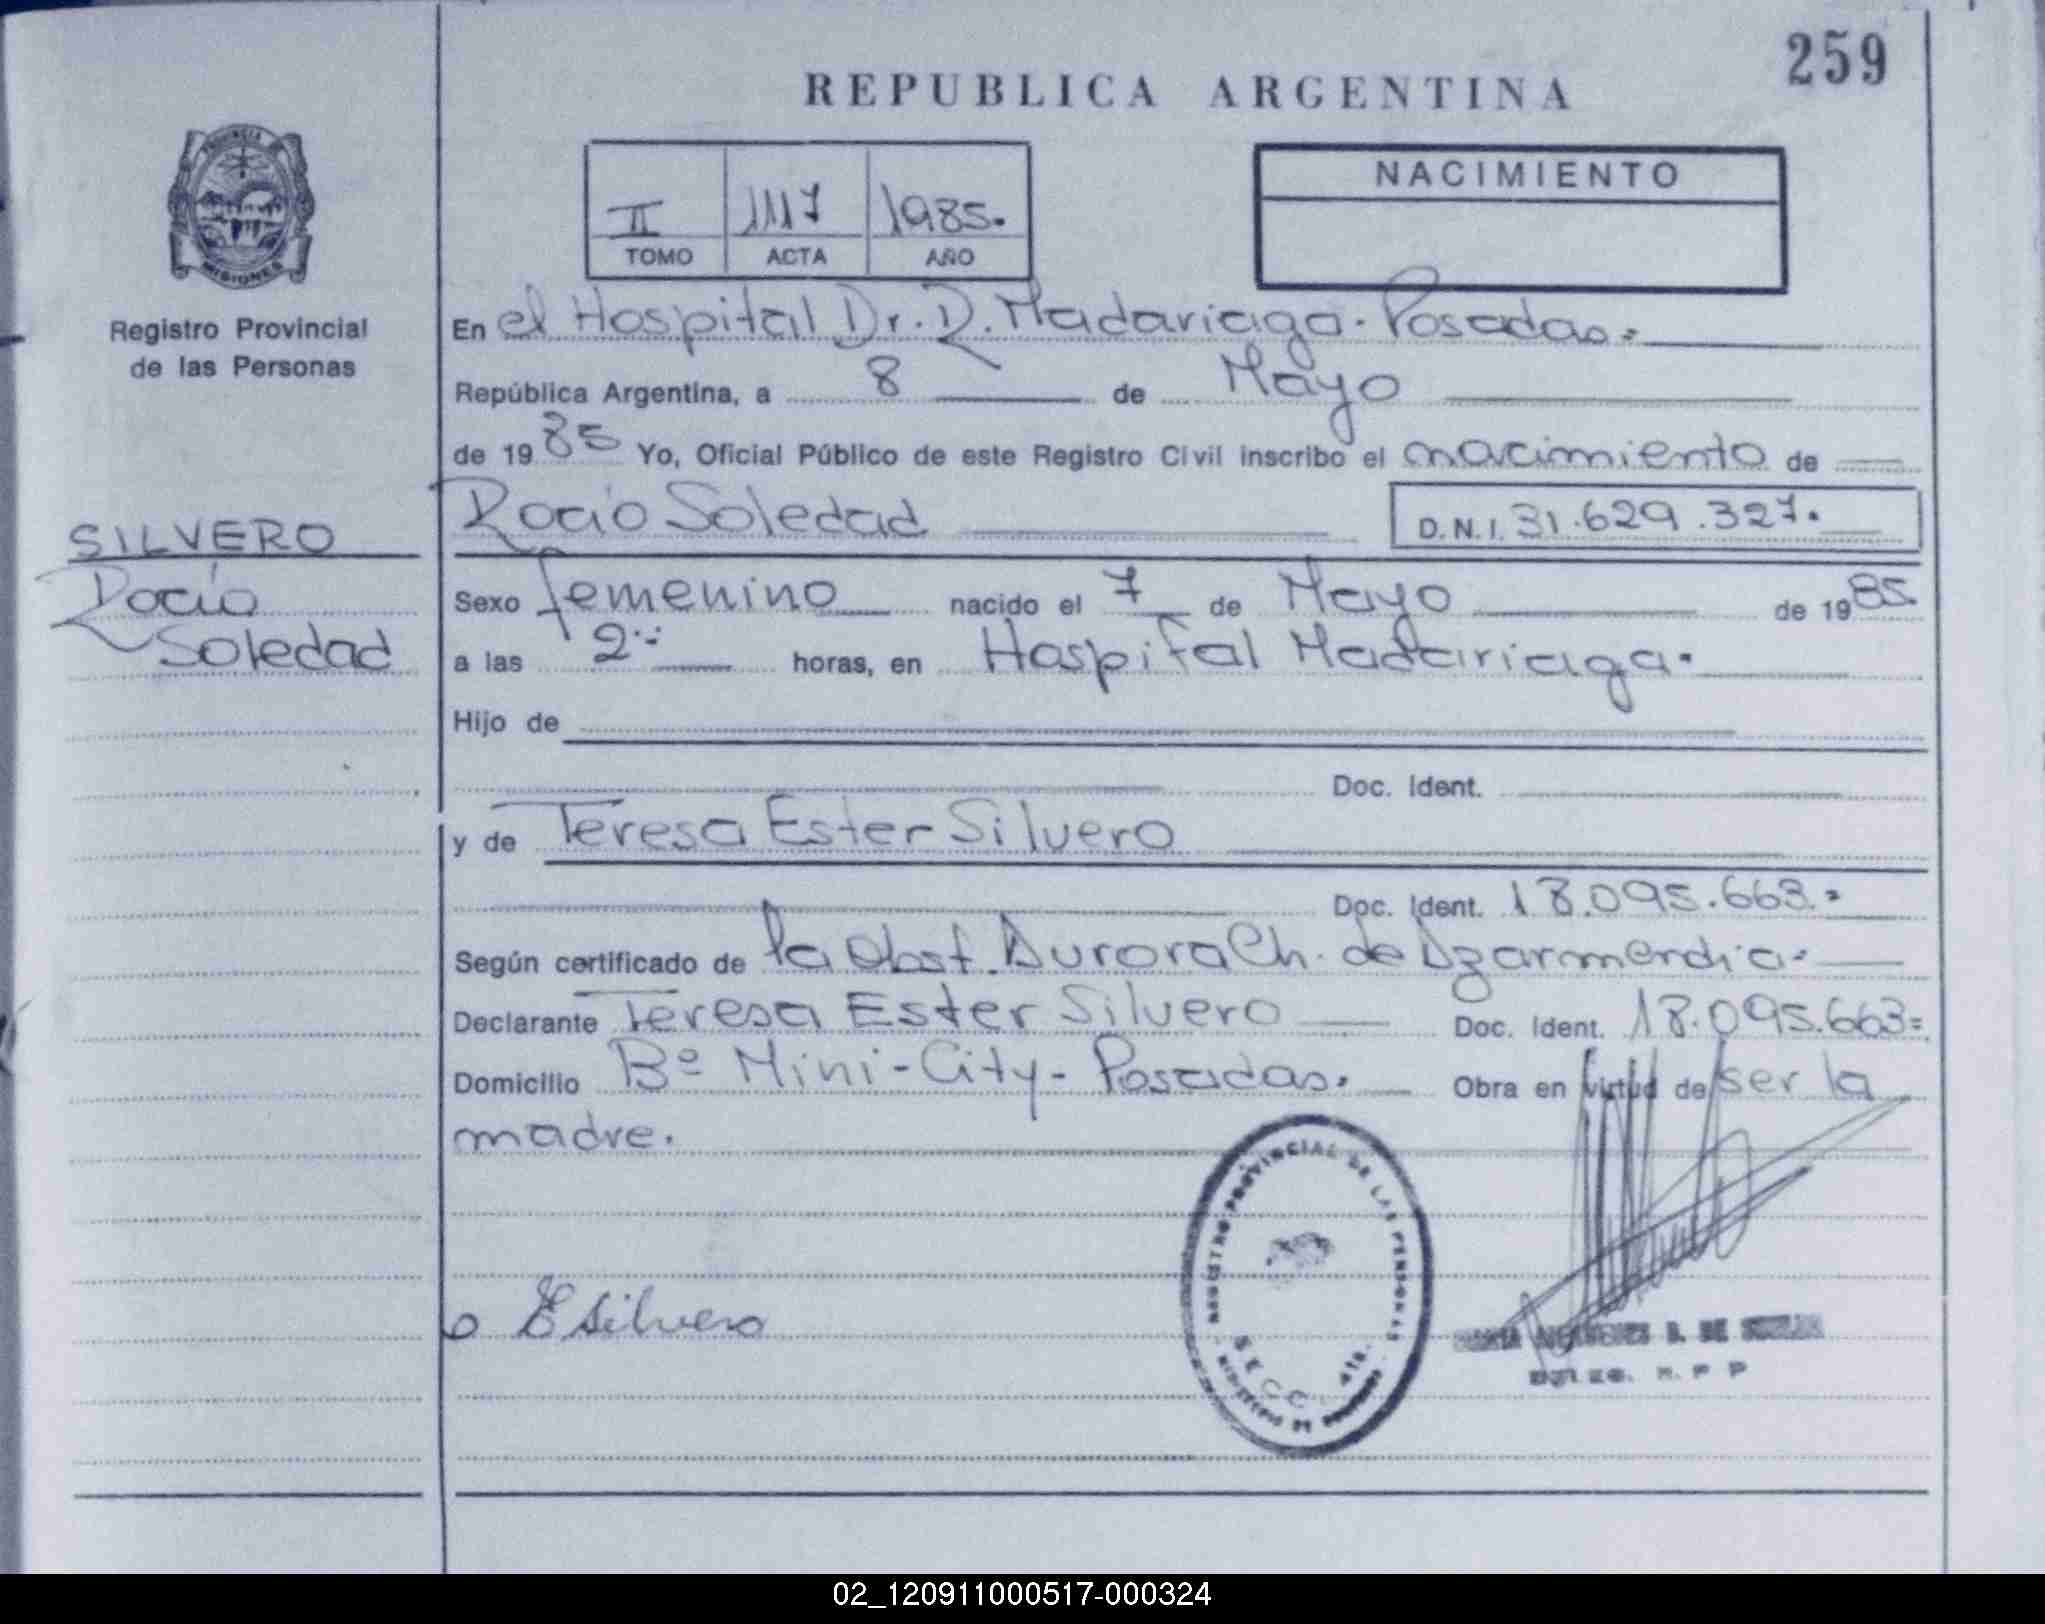 259
REPUBLICA ARGENTINA
PROVINCIA
MISIONES
Registro Provincial
de las Personas
II 1117 1985.
TOMO ACTA AÑO
NACIMIENTO
En el Hospital Dr. R. Madariaga. Posadas.
República Argentina, a 8 de Mayo
de 1985 Yo, Oficial Público de este Registro Civil inscribo el nacimiento de
Rocio Soledad D.N.I. 31.629.327.
SILVERO
Rocio
Soledad
Sexo femenino nacido el 7 de Mayo de 1985.
a las 2 horas, en Hospital Madariaga.
Hijo de
Doc. Ident.
y de Teresa Ester Silvero
Doc. Ident. 18.095.663.
Según certificado de la Obst. Aurora Ch. de
Declarante Teresa Ester Silvero Doc. Ident. 18.095.663=
Domicilio Bº Mini-City- Posadas. Obra en virtud de ser la
madre.
REGISTRO PROVINCIAL DE LAS PERSONAS
SECC. 4ta.
MINISTERIO DE
E Silvero
DE
R. P. P
02_120911000517-000324